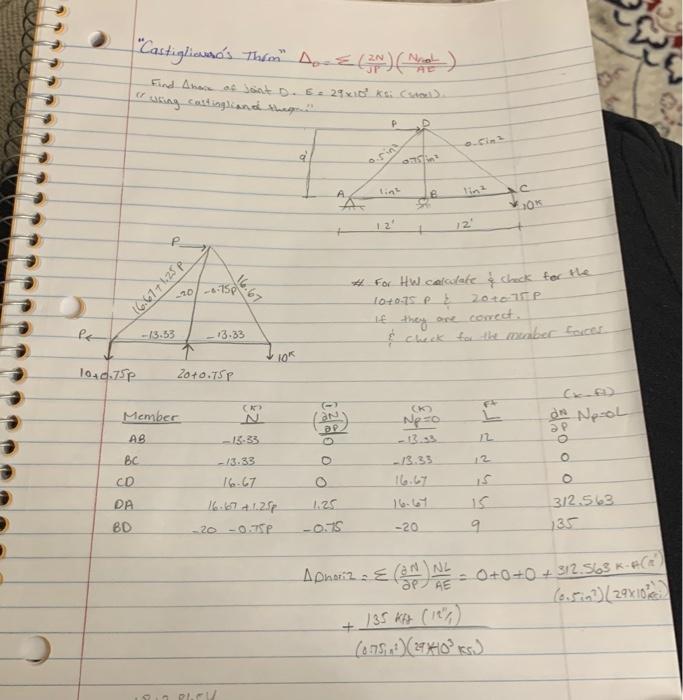 "Castigliano's Thm" Δ₀ = Σ (∂N/∂P)(N_P=0 L/AE)
Find Δhorz of joint D. E = 29x10³ Ksi (steel).
"using castigliano theom."
P D
9' 0.5in² 0.75in² 0.5in²
A 1in² B 1in² C
10K
12' 12'
P
16.67+1.25P -20 -0.75P 16.67
P -13.33 -13.33
10K
10+0.75P 20+0.75P
* For HW calculate & check for the
10+0.75 P & 20+0.75P
if they are correct.
& check for the member forces
Member (K) N (-) (∂N/∂P) (K) Np=0 Ft L (K-ft) ∂N/∂P Np=0L
AB -13.33 0 -13.33 12 0
BC -13.33 0 -13.33 12 0
CD 16.67 0 16.67 15 0
DA 16.67+1.25P 1.25 16.67 15 312.563
BD -20 -0.75P -0.75 -20 9 135
ΔDhoriz = Σ (∂N/∂P) NL/AE = 0+0+0 + 312.563 K-ft(12")/(0.5in²)(29x10³ksi)
+ 135 Kft (12"/1)/(0.75in²)(29x10³ Ksi)